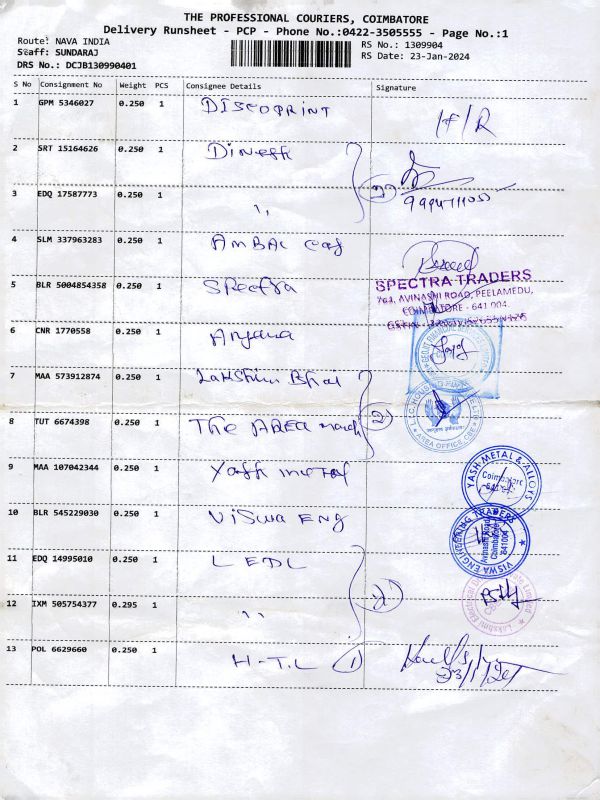 THE PROFESSIONAL COURIERS, COIMBATORE
Delivery Runsheet - PCP - Phone No.:0422-3505555 - Page No.:1
Route: NAVA INDIA
RS No.: 1309904
Staff: SUNDARAJ
RS Date: 23-Jan-2024
DRS No.: DCJB130990401
S No Consignment No Weight PCS Consignee Details Signature
1 GPM 5346027 0.250 1 DISCOPRINT
2 SRT 15164626 0.250 1 Dinesh
3 EDQ 17587773 0.250 1 ,,
4 SLM 337963283 0.250 1 AMBAL
5 BLR 5004854358 0.250 1 Spectra
SPECTRA TRADERS
AVINASHI ROAD, PEELAMEDU,
COIMBATORE - 641 004.
6 CNR 1770558 0.250 1 Anjana
7 MAA 573912874 0.250 1 Lakshmi
8 TUT 6674398 0.250 1 The AREA
AREA OFFICE, CBE
9 MAA 107042344 0.250 1 Yash metal
YASH METAL & ALLOYS
Coimbatore
10 BLR 545229030 0.250 1 Viswa ENG
VISWA ENGINEERING TRADERS
Avinashi Road
Coimbatore
641004
11 EDQ 14995010 0.250 1 LEDL
12 IXM 505754377 0.295 1 ,,
13 POL 6629660 0.250 1 H.T.L 1
23/1/24